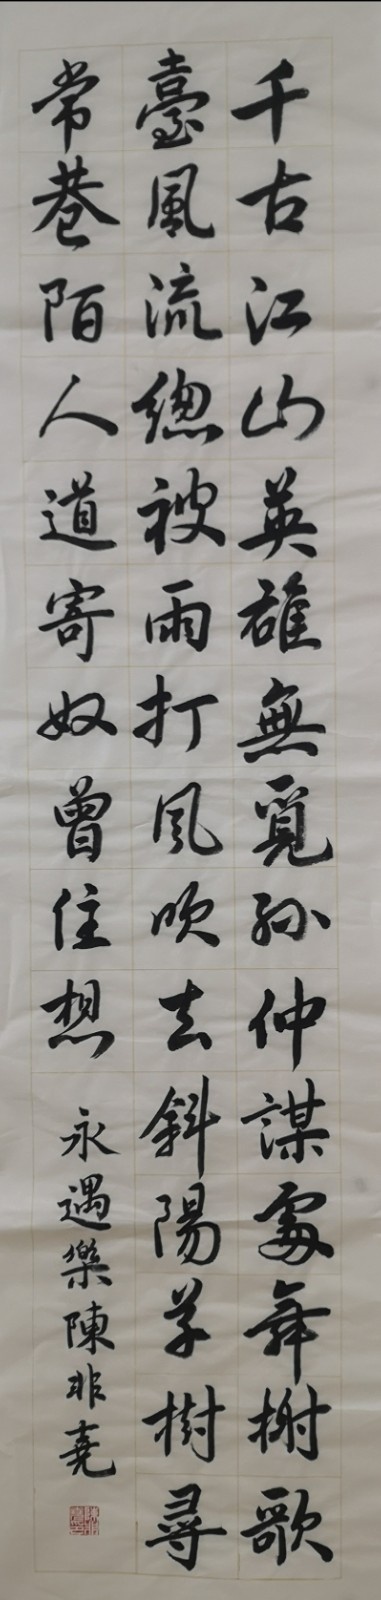 千古江山英雄無覓孫仲謀處舞榭歌
臺風流總被雨打風吹去斜陽草樹尋
常巷陌人道寄奴曾住想
永遇樂陳非堯